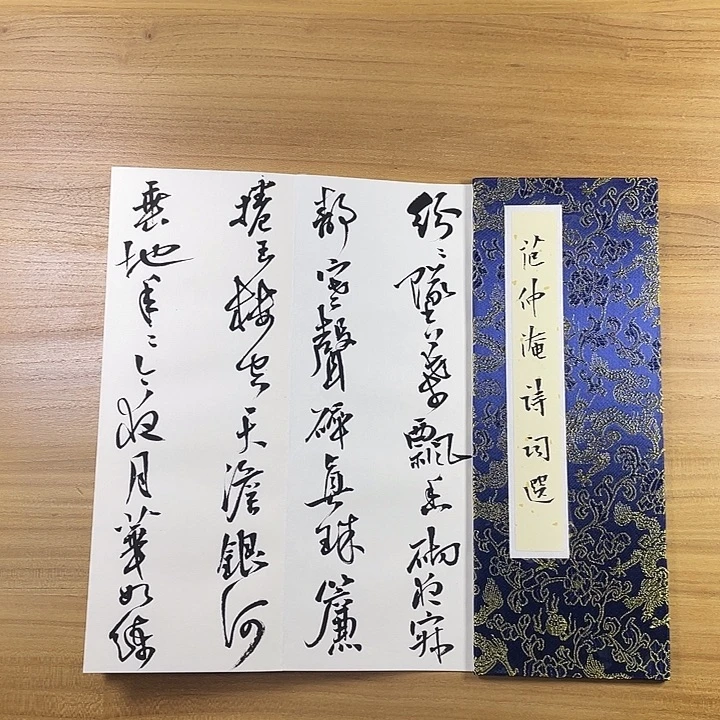 范仲淹詩詞選
紛〻墜葉飄香砌夜寂
靜寒聲碎眞珠簾
捲玉樓空天澹銀河
垂地年〻今夜月華如練